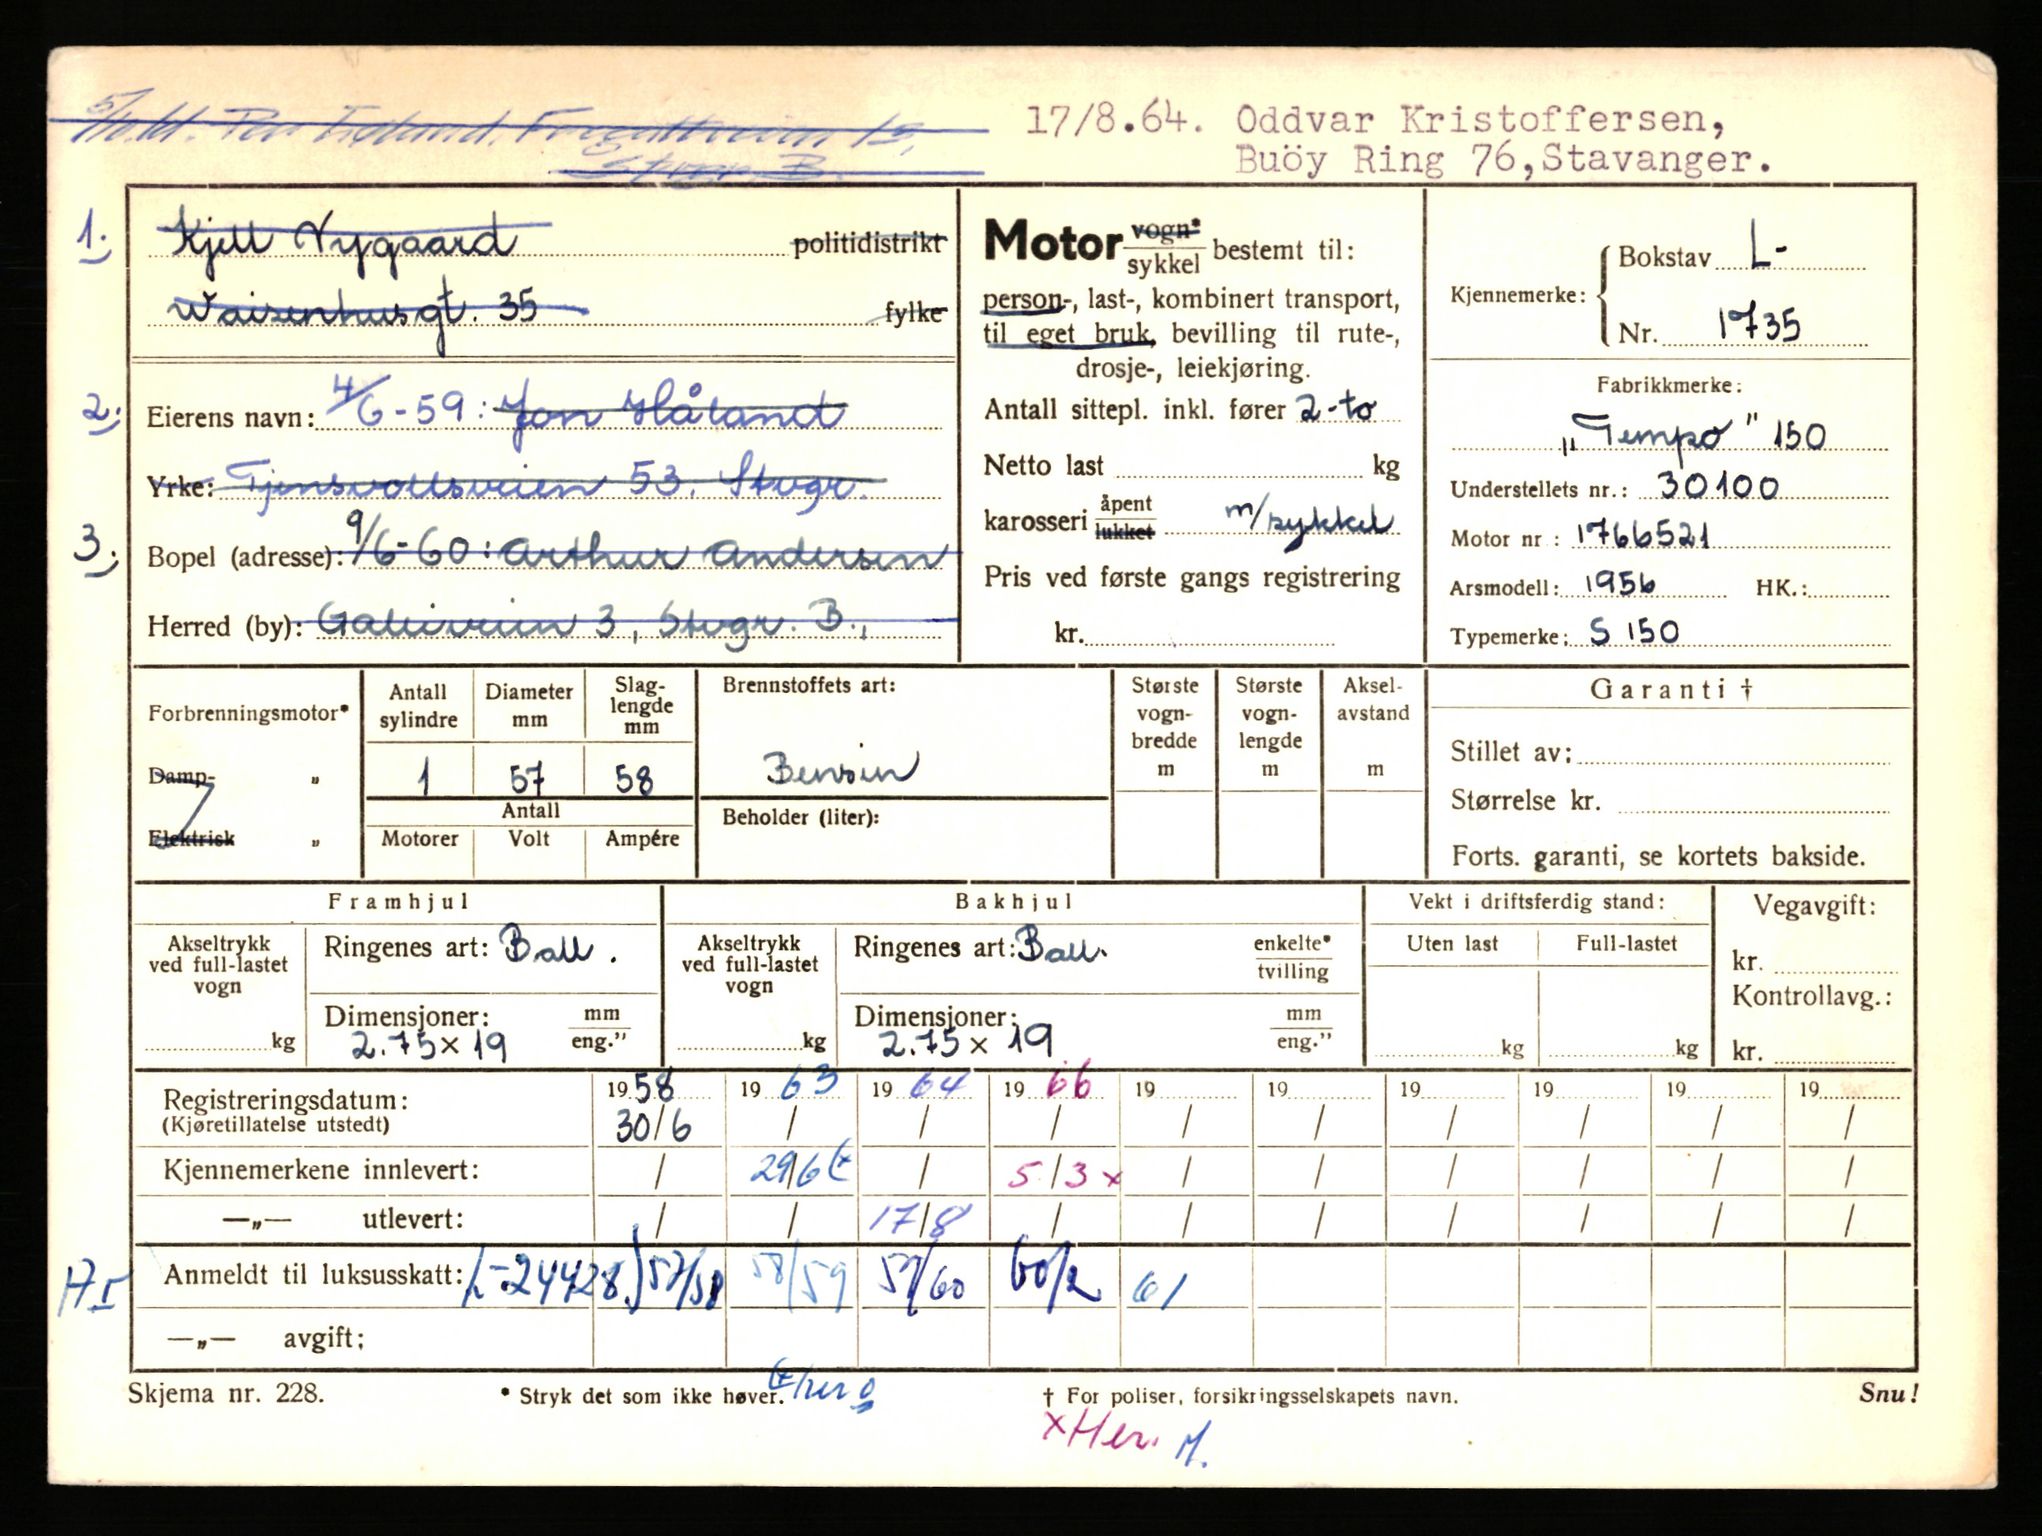 17/8.64. Oddvar Kristoffersen,
Buöy Ring 76,Stavanger.
1. Kjell Nygaard politidistrikt
Waisenhusgt. 35 fylke
2. Eierens navn: 4/6-59: Jon Håland
Yrke: Tjensvollsveien 53. Stvgr.
3. Bopel (adresse): 9/6-60: Arthur Andersen
Herred (by): 3, Stvgr. B.,
Motor vogn*/sykkel bestemt til:
person-, last-, kombinert transport,
til eget bruk, bevilling til rute-,
drosje-, leiekjøring.
Antall sittepl. inkl. fører 2-to
Netto last kg
karosseri åpent/lukket m/sykkel
Pris ved første gangs registrering
kr.
Kjennemerke: Bokstav L-
Nr. 1735
Fabrikkmerke:
„Tempo" 150
Understellets nr.: 30100
Motor nr : 1766521
Arsmodell: 1956 HK.:
Typemerke: S 150
Forbrenningsmotor*
Damp- „
Elektrisk „
Antall sylindre Diameter mm Slag-lengde mm
1 57 58
Antall
Motorer Volt Ampére
Brennstoffets art:
Bensin
Beholder (liter):
Største vogn-bredde m
Største vogn-lengde m
Aksel-avstand m
Garanti †
Stillet av:
Størrelse kr.
Forts. garanti, se kortets bakside.
Framhjul
Akseltrykk ved full-lastet vogn kg
Ringenes art: Ball.
Dimensjoner: mm/eng."
2.75 x 19
Bakhjul
Akseltrykk ved full-lastet vogn kg
Ringenes art: Ball. enkelte*/tvilling
Dimensjoner: mm/eng."
2.75 x 19
Vekt i driftsferdig stand:
Uten last Full-lastet
kg kg
Vegavgift:
kr.
Kontrollavg.:
kr.
Registreringsdatum: 1958 1963 1964 1966 19 19 19 19 19 19
(Kjøretillatelse utstedt) 30/6 / / / / / / / / /
Kjennemerkene innlevert: / 29/6 / 5/3 x / / / / / /
—„— utlevert: / / 17/8 / / / / / / /
Anmeldt til luksusskatt: L-24428.) 57/58 58/59 59/60 60/2 61
—„— avgift:
Skjema nr. 228. * Stryk det som ikke høver. † For poliser, forsikringsselskapets navn. Snu!
x Her. M.